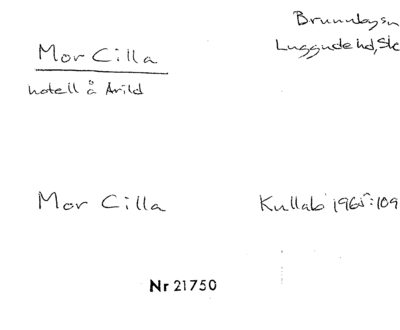 Mor Cilla
hotell å Arild
Brunnbysn
Luggude hd, Sk
Mor Cilla
Kullabo 1965:109
Nr 21750